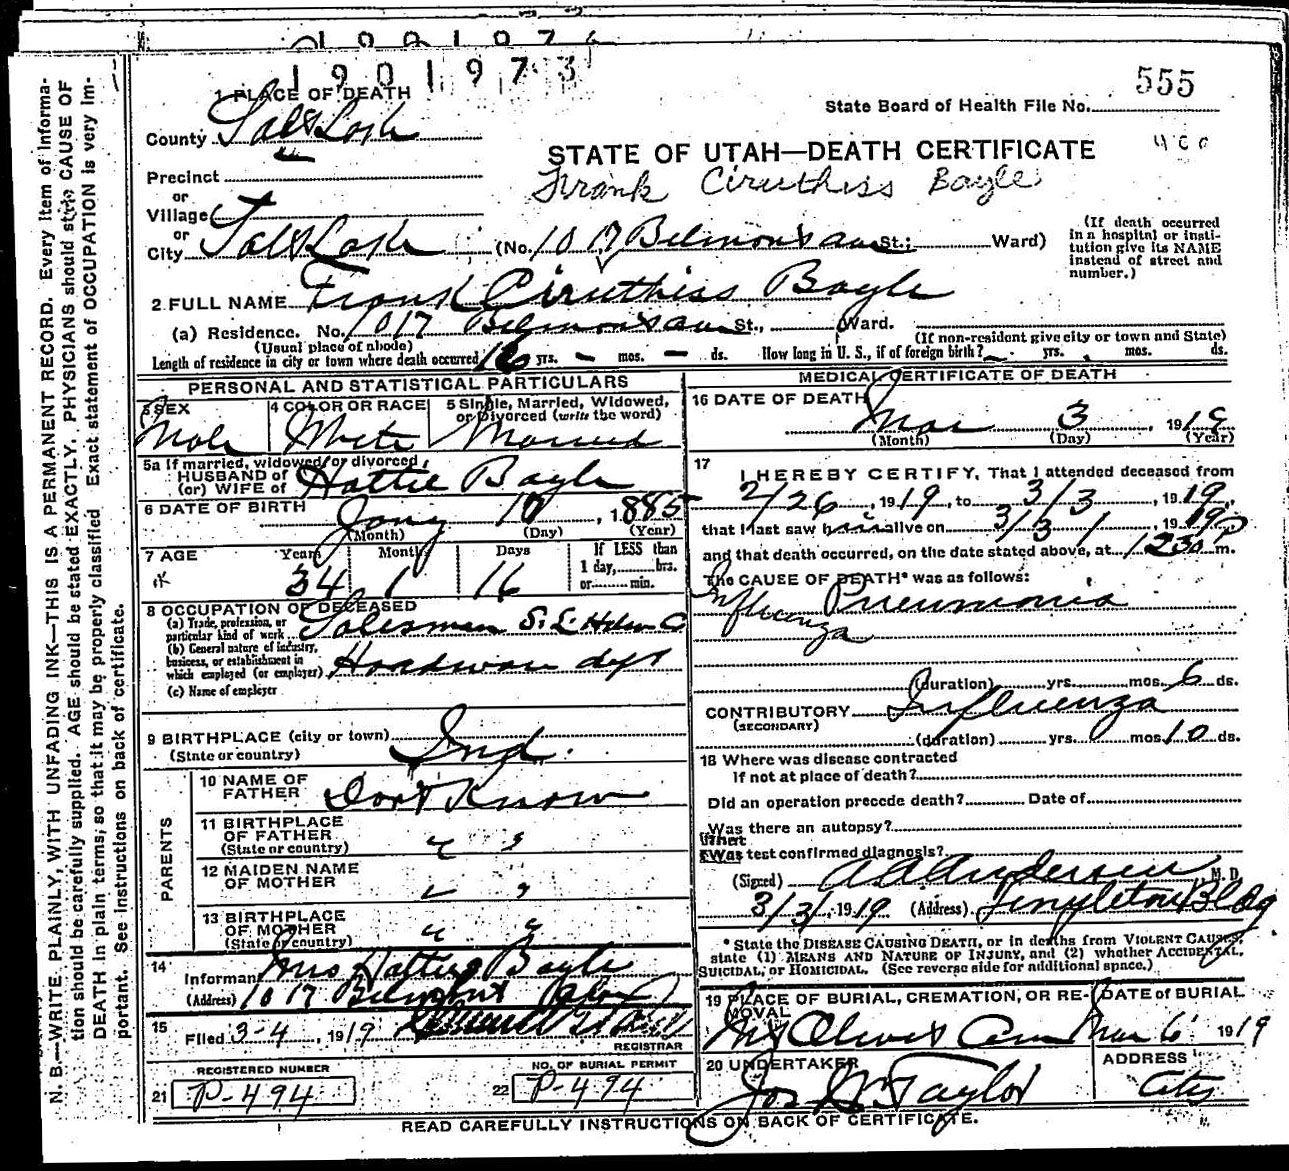 1901973
555
1 PLACE OF DEATH
State Board of Health File No.
County Salt Lake
STATE OF UTAH—DEATH CERTIFICATE
Precinct
Frank Ciruthiss Bayle
or
Village
or
City Salt Lake (No. 1017 Belmont ave St.; Ward)
(If death occurred in a hospital or institution give its NAME instead of street and number.)
2. FULL NAME Frank Ciruthiss Bayle
(a) Residence. No. 1017 Belmont ave St., Ward.
(Usual place of abode) (If non-resident give city or town and State)
Length of residence in city or town where death occurred 16 yrs. – mos. – ds. How long in U. S., if of foreign birth? yrs. mos. ds.
PERSONAL AND STATISTICAL PARTICULARS
3 SEX Male
4 COLOR OR RACE White
5 Single, Married, Widowed, or Divorced (write the word) Married
5a If married, widowed, or divorced,
HUSBAND of
(or) WIFE of Hattie Bayle
6 DATE OF BIRTH Jany 10, 1885
(Month) (Day) (Year)
7 AGE Years 34 Months 1 Days 16
If LESS than 1 day, hrs. or min.
8 OCCUPATION OF DECEASED
(a) Trade, profession, or particular kind of work Salesman S. L. Hdw Co
(b) General nature of industry, business, or establishment in which employed (or employer) Hardware dept
(c) Name of employer
9 BIRTHPLACE (city or town)
(State or country) Ind.
PARENTS
10 NAME OF FATHER Don't Know
11 BIRTHPLACE OF FATHER (State or country) " "
12 MAIDEN NAME OF MOTHER " "
13 BIRTHPLACE OF MOTHER (State or country) " "
14 Informant Mrs Hattie Bayle
(Address) 1017 Belmont
15 Filed 3-4, 1919
REGISTRAR
REGISTERED NUMBER
21 P-494
NO. OF BURIAL PERMIT
22 P-494
MEDICAL CERTIFICATE OF DEATH
16 DATE OF DEATH
Mar 3 1919
(Month) (Day) (Year)
17 I HEREBY CERTIFY, That I attended deceased from
2/26, 1919, to 3/3, 1919,
that I last saw him alive on 3/3, 1919
and that death occurred, on the date stated above, at 1230 P m.
The CAUSE OF DEATH* was as follows:
Influenza Pneumonia
(duration) yrs. mos. 6 ds.
CONTRIBUTORY Influenza
(SECONDARY)
(duration) yrs. mos. 10 ds.
18 Where was disease contracted
if not at place of death?
Did an operation precede death? Date of
Was there an autopsy?
What test confirmed diagnosis?
(Signed) A A Anderson M. D.
3/3, 1919 (Address) Templeton Bldg
* State the DISEASE CAUSING DEATH, or in deaths from VIOLENT CAUSES,
state (1) MEANS AND NATURE OF INJURY, and (2) whether ACCIDENTAL,
SUICIDAL, or HOMICIDAL. (See reverse side for additional space.)
19 PLACE OF BURIAL, CREMATION, OR REMOVAL Mt Olivet Cem
DATE of BURIAL Mar 6 1919
20 UNDERTAKER Jos Wm Taylor
ADDRESS City
READ CAREFULLY INSTRUCTIONS ON BACK OF CERTIFICATE.
N. B.—WRITE PLAINLY, WITH UNFADING INK—THIS IS A PERMANENT RECORD. Every item of information should be carefully supplied. AGE should be stated EXACTLY. PHYSICIANS should state CAUSE OF DEATH in plain terms, so that it may be properly classified. Exact statement of OCCUPATION is very important. See instructions on back of certificate.